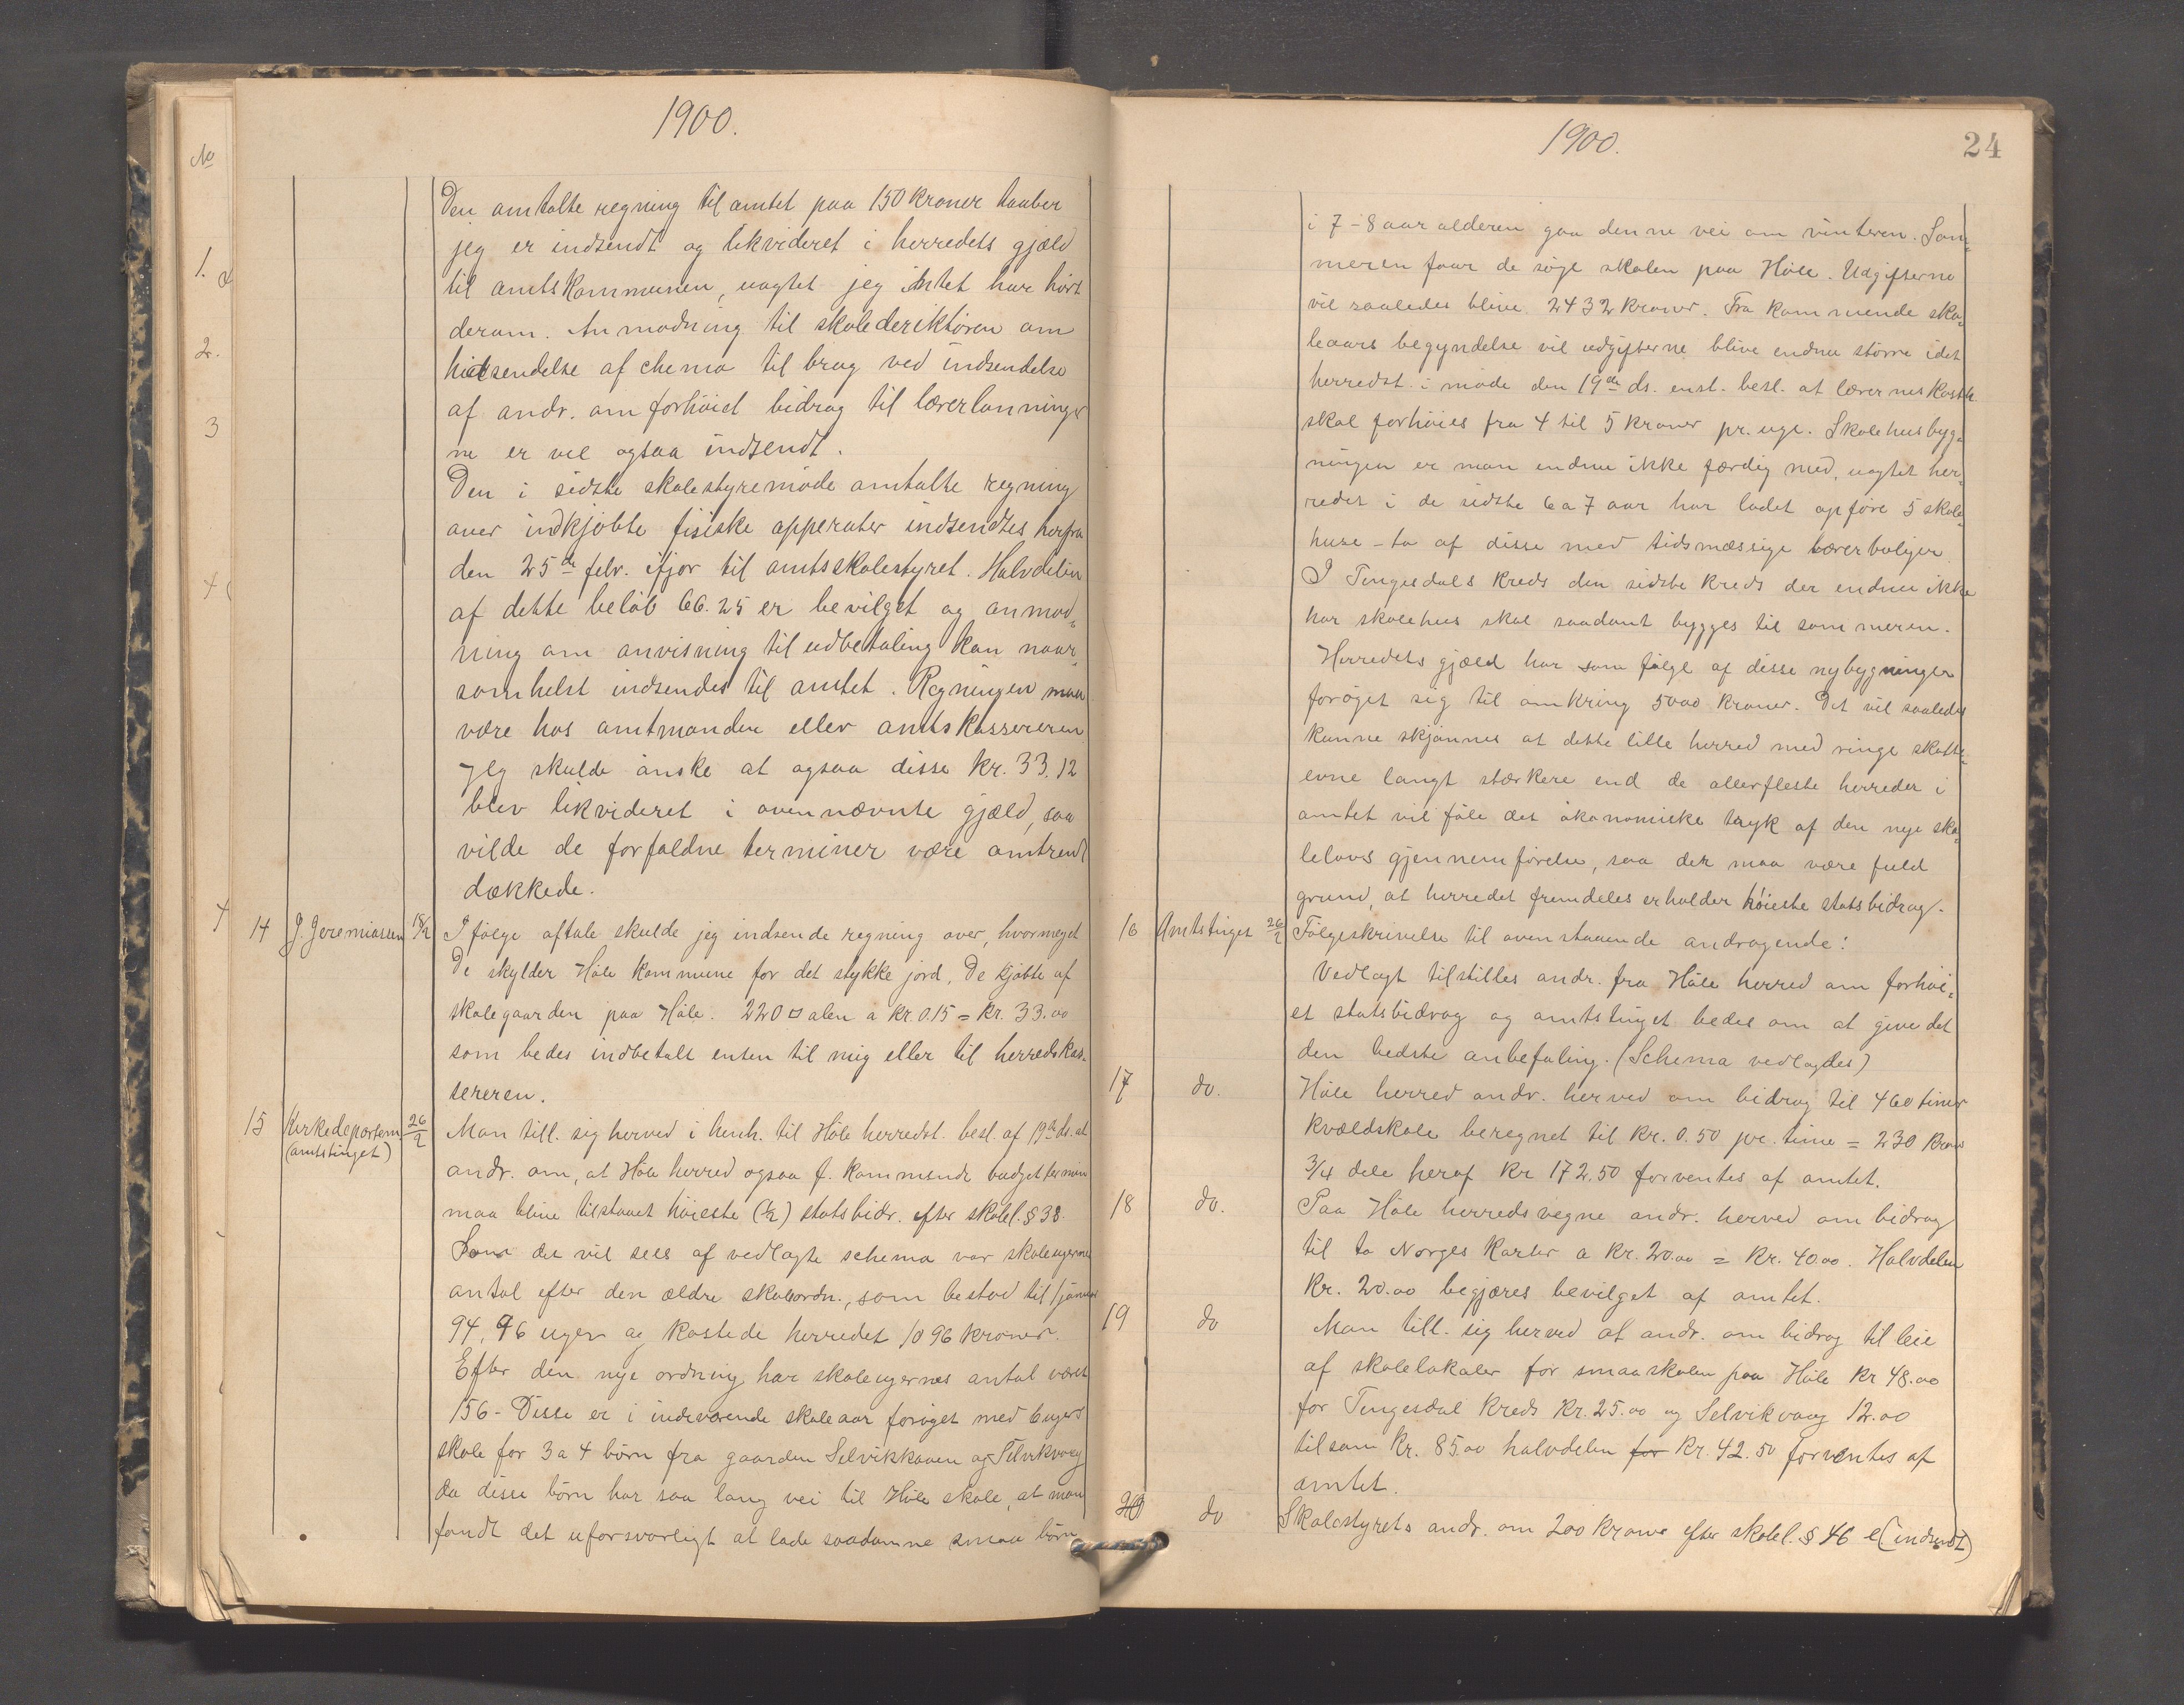 1900.
Den omtalte regning til amtet paa 150 kroner haaber
jeg er indsendt og likvideret i herredets gjæld
til amtskommunen, uagtet jeg intet har hørt
derom. Anmodning til skoledirektøren om
hidsendelse af chema til brug ved indsendelse
af andr. om forhøiet bidrag til lærerlønninger
ne er vel ogsaa indsendt.
Den i sidste skolestyremøde omtalte regning
over indkjøbte fisiske apperater indsendtes herfra
den 25de febr. ifjor til amtsskolestyret. Halvdelen
af dette beløb 66.25 er bevilget og anmod„
ning om anvisning til udbetaling kan naar„
somhelst indsendes til amtet. Regningen maa
være hos amtmanden eller amtskassereren
Jeg skulde ønske at ogsaa disse kr. 33.12
blev likvideret i ovennævnte gjæld, saa
vilde de forfaldne terminer være omtrent
dækkede.
14 J. Jeremiassen 18/2 Ifølge aftale skulde jeg indsende regning over, hvormeget
De skylder Høle kommune for det stykke jord, De kjøbte af
skolegaarden paa Høle. 220 □ alen a kr. 0.15 = kr. 33.00
som bedes indbetalt enten til mig eller til herredskas„
sereren.
15 Kirkedepartem (amtstinget) 26/2 Man till. sig herved i henh. til Høle herredst. besl. af 19de ds. at
andr. om, at Høle herred ogsaa f. kommende budgettermin
maa blive tilstaaet høieste (1/2) statsbidr. efter skolel. § 38.
Som det vil sees af vedlagte schema var skoleugernes
antal efter den ældre skoleordn., som bestod til 1 januar
94, 96 uger og kostede herredet 1096 kroner.
Efter den nye ordning har skoleugernes antal været
156 - Disse er i indeværende skoleaar forøget med 6 ugers
skole for 3 a 4 børn fra gaarden Selvikkaaen og Selvikvaag
da disse børn har saa lang vei til Høle skole, at man
fandt det uforsvarligt at lade saadanne smaa børn
1900.
24
i 7-8 aar alderen gaa denne vei om vinteren. Som„
meren faar de søge skolen paa Høle. Udgifterne
vil saaledes blive 2432 kroner. Fra kommende sko„
leaars begyndelse vil udgifterne blive endnu større idet
herredst. i møde den 19de ds. enst. besl. at lærernes kosth.
skal forhøies fra 4 til 5 kroner pr. uge. Skolehusbyg„
ningen er man endnu ikke færdig med, uagtet her„
redet i de sidste 6 a 7 aar har ladet opføre 5 skole„
huse - to af disse med tidsmæssige lærerboliger.
I Tengesdals kreds den sidste kreds der endnu ikke
har skolehus skal saadant bygges til sommeren.
Herredets gjæld har som følge af disse nybygninger
forøget sig til omkring 5000 kroner. Det vil saaledes
kunne skjønnes at dette lille herred med ringe skatte„
evne langt stærkere end de allerfleste herreder i
amtet vil føle det økonomiske tryk af den nye sko„
lelovs gjennemførelse, saa der maa være fuld
grund, at herredet fremdeles erholder høieste statsbidrag.
16 Amtstinget 26/2 Følgeskrivelse til ovenstaaende andragende:
Vedlagt tilstilles andr. fra Høle herred om forhøi„
et statsbidrag og amtstinget bedes om at give det
den bedste anbefaling. (Schema vedlagdes)
17 do. Høle herred andr. herved om bidrag til 460 timer
kvældskole beregnet til kr. 0.50 pr. time = 230 kroner
3/4 dele heraf kr 172.50 forventes af amtet.
18 do. Paa Høle herreds vegne andr. herved om bidrag
til to Norges karter a kr. 20.00 = kr. 40.00. Halvdelen
kr. 20.00 begjæres bevilget af amtet.
19 do Man till. sig herved at andr. om bidrag til leie
af skolelokaler for smaaskolen paa Høle kr 48.00
for Tengesdal kreds kr. 25.00 og Selvikvaag 12.00
tilsam kr. 85.00 halvdelen for kr. 42.50 forventes af
amtet.
20 do Skolestyrets andr. om 200 kroner efter skolel. § 46 e (indsendt)